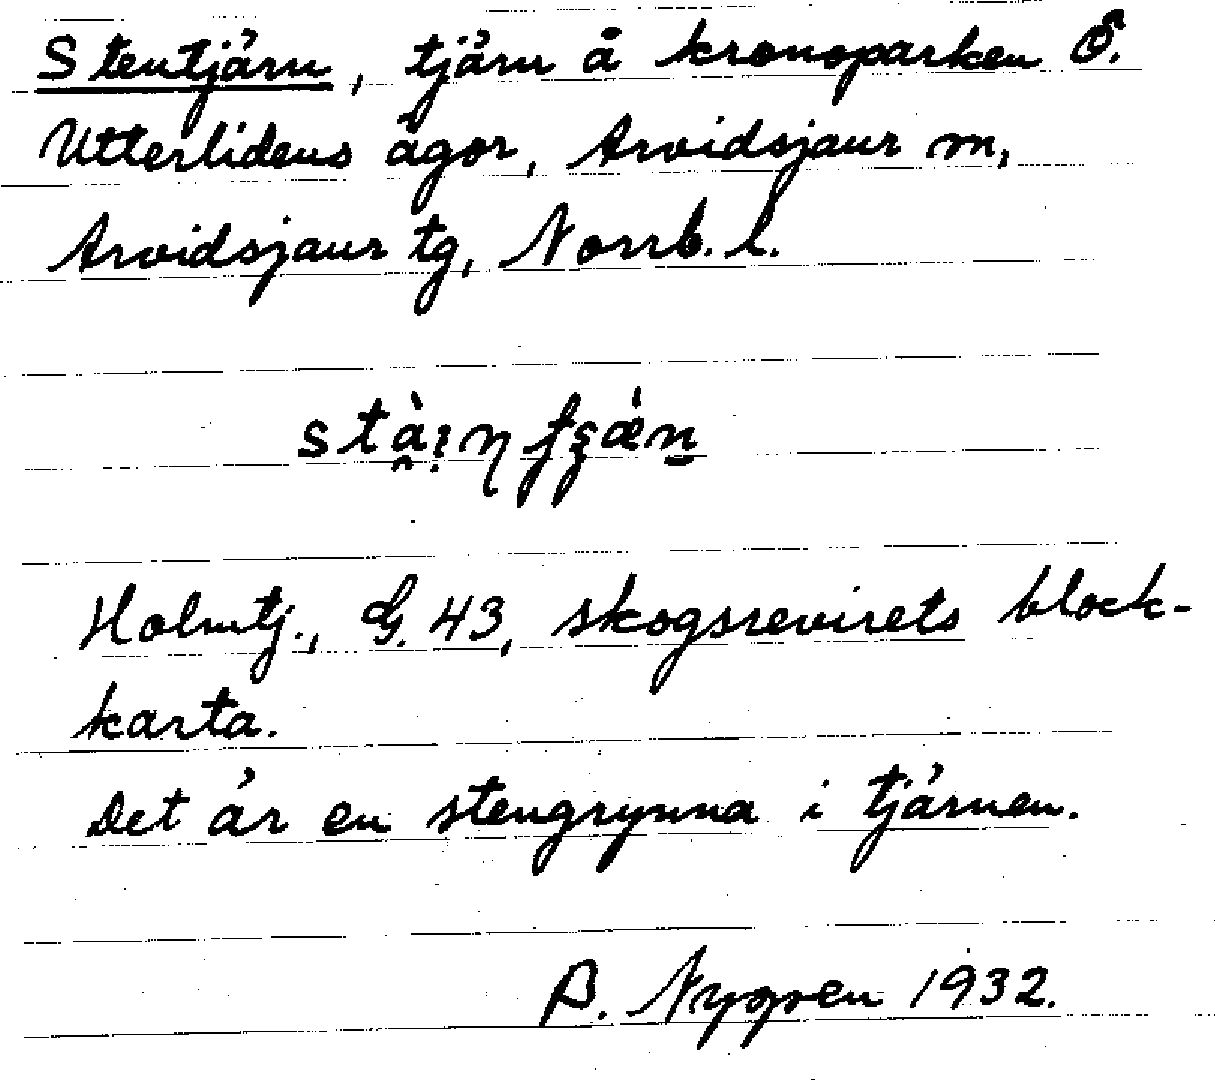 Stentjärn, tjärn å kronoparken Ö.
Utterlidens ägor, Arvidsjaur m,
Arvidsjaur tg, Norrb. l.
Holmtj., G. 43, skogsrevirets block-
karta.
Det är en stengrynna i tjärnen.
B. Nygren 1932.